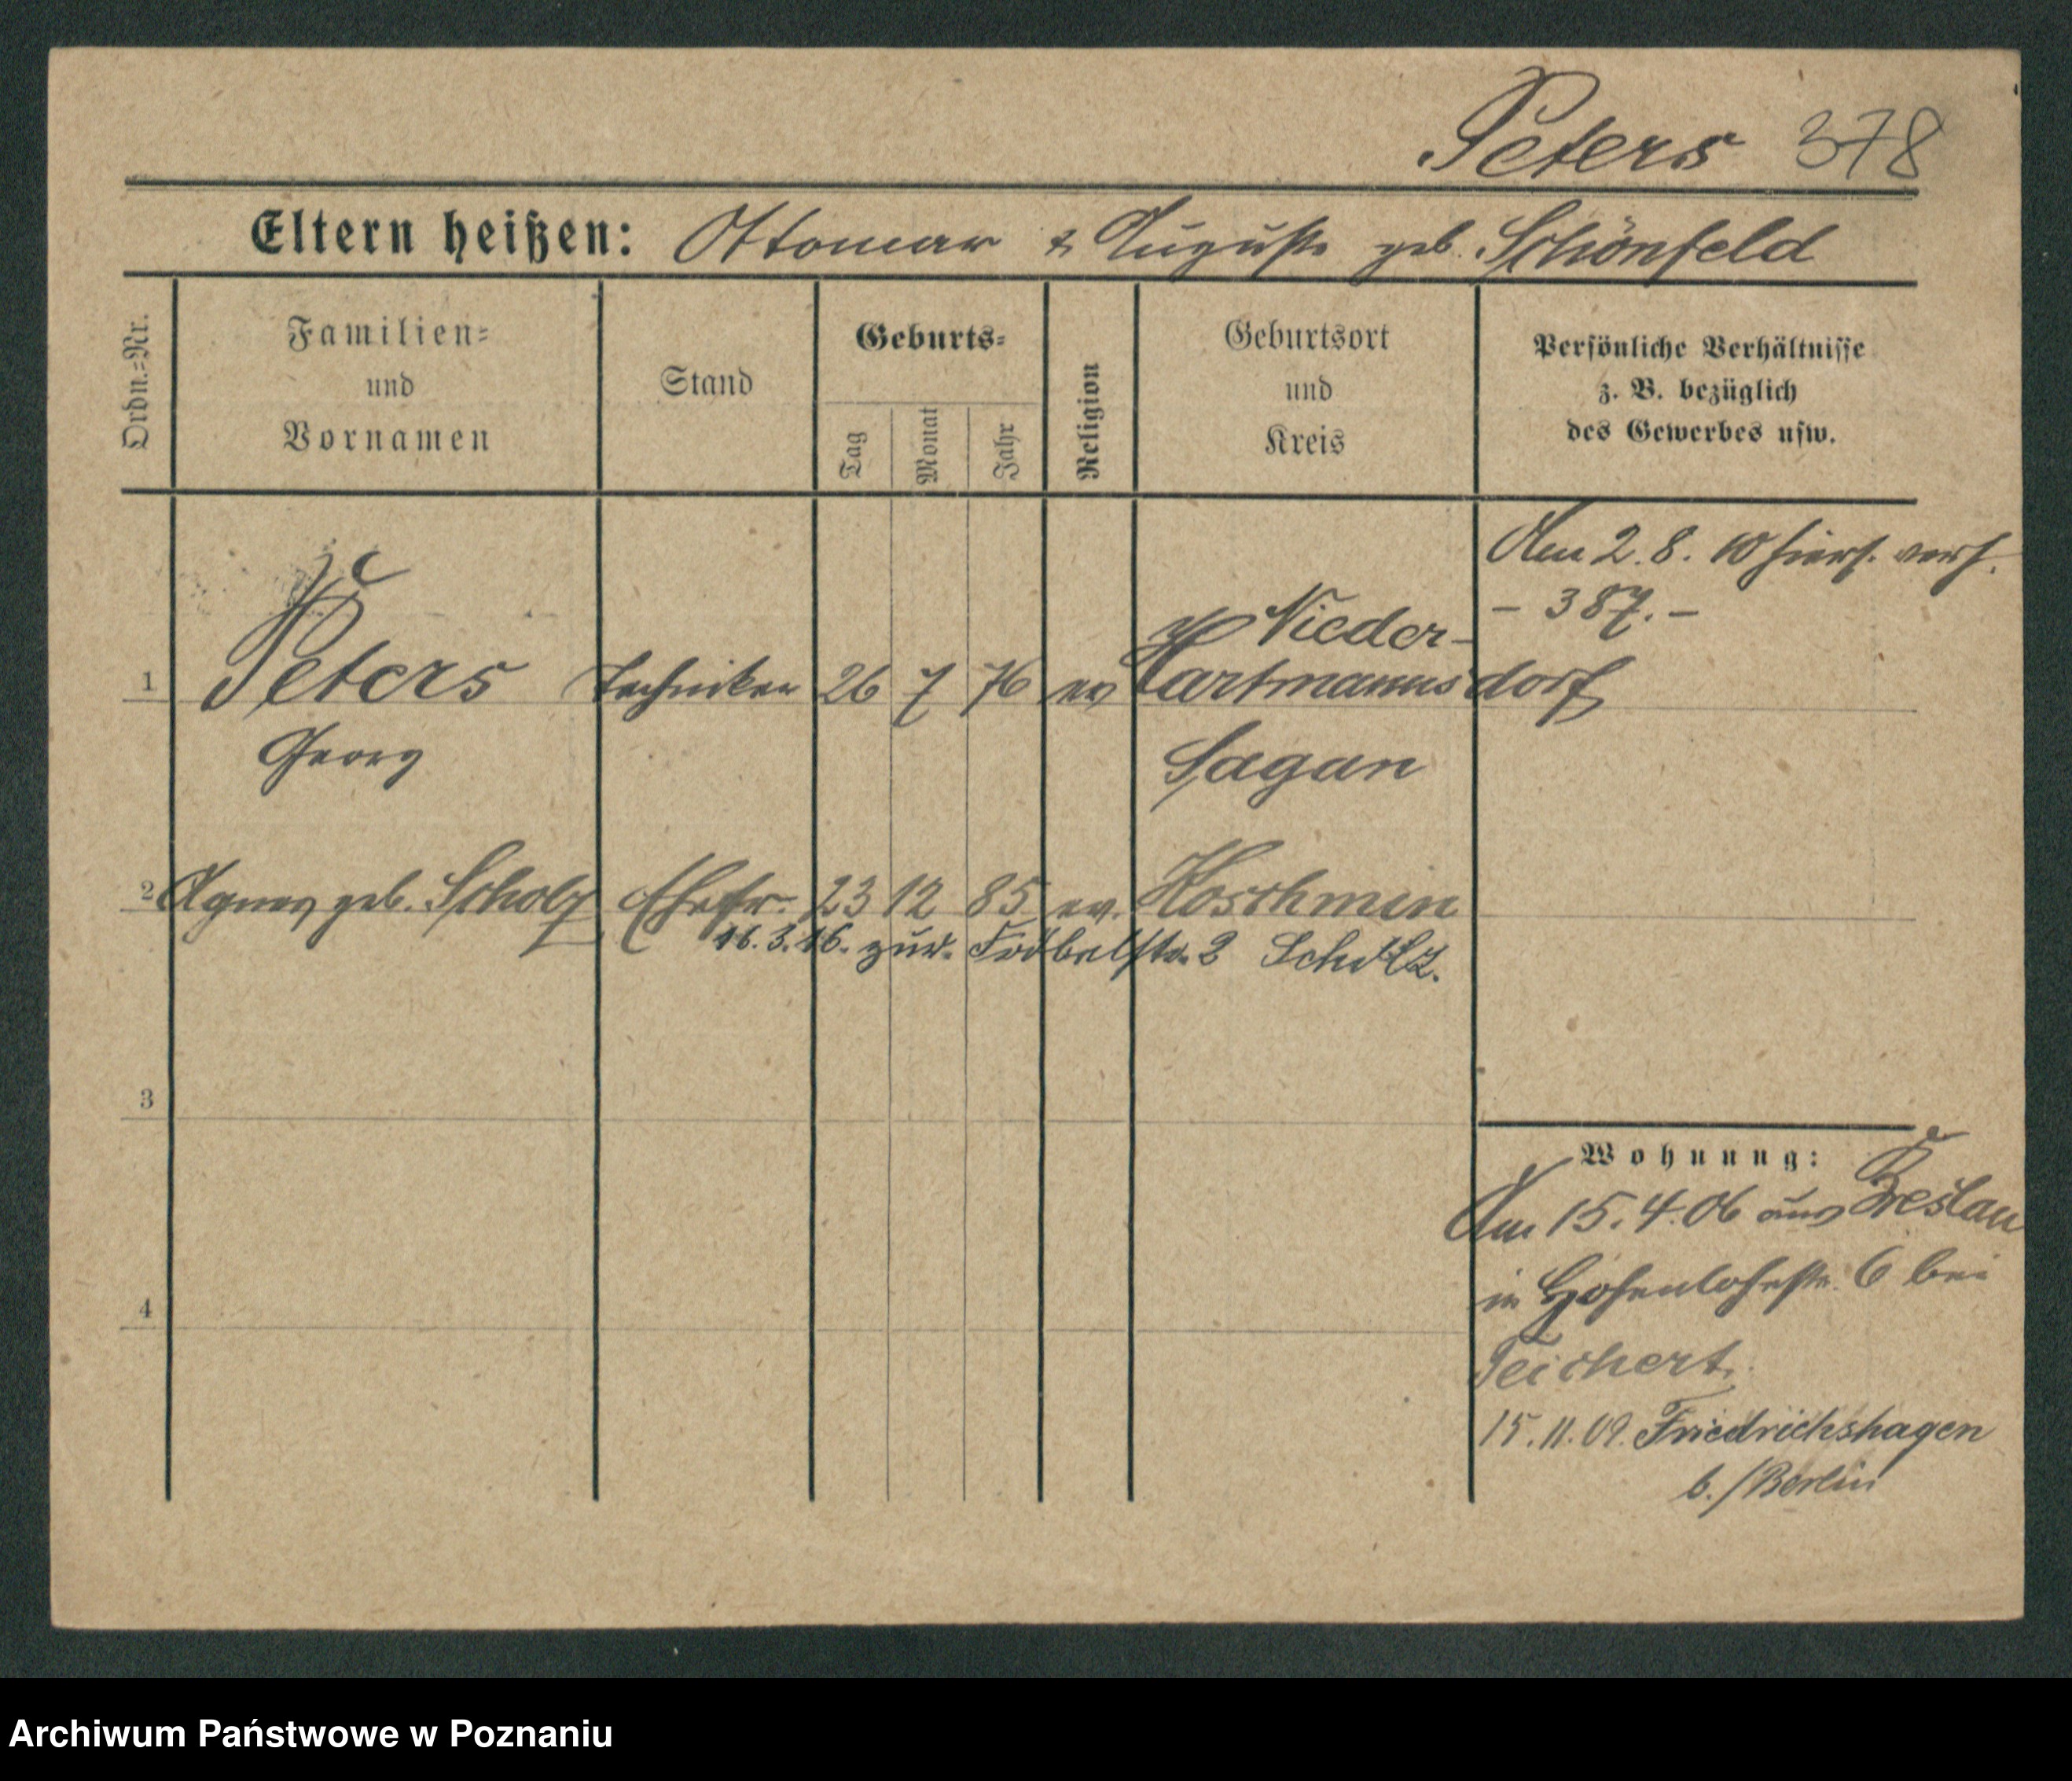 Peters 378
Eltern heißen: Ottomar & Auguste geb. Schönfeld
Ordn.=Nr.
Familien=
und
Vornamen
Stand
Geburts=
Tag
Monat
Jahr
Religion
Geburtsort
und
Kreis
Persönliche Verhältnisse
z. B. bezüglich
des Gewerbes usw.
Am 2.8.10 hiers. verh.
– 387. –
1 Peters Techniker 26 7 76 ev Nieder-
Hartmannsdorf
Georg Sagan
2 Agnes geb. Scholz Ehefr. 23 12 85 ev. Koschmin
16.3.16. zur. Fröbelstr. 2 Scholz.
3
4
Wohnung:
Am 15.4.06 aus Breslau
in Hohenlohestr. 6 bei
Teichert.
15.11.09. Friedrichshagen
b./Berlin
Archiwum Państwowe w Poznaniu